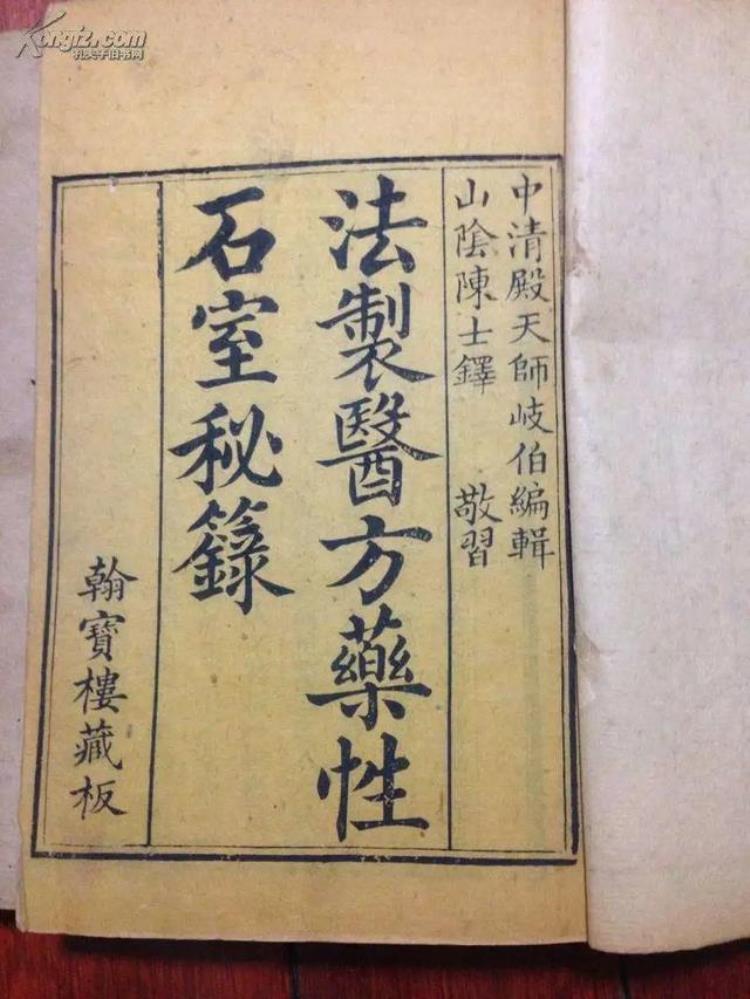 中清殿天師岐伯編輯
山陰陳士鐸 敬習
法製醫方藥性
石室秘籙
翰寶樓藏板
Kongfz.com
孔夫子旧书网